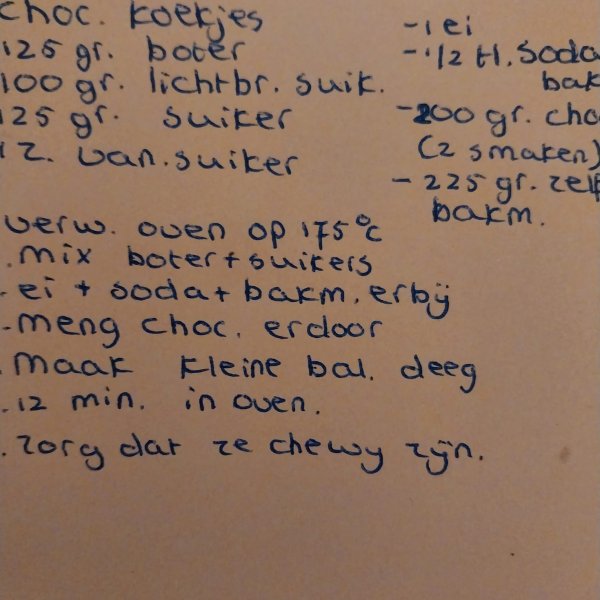 choc. koekjes
125 gr. boter
100 gr. lichtbr. suik.
125 gr. suiker
1 z. van. suiker
- 1 ei
- 1/2 tl. soda
bak
- 200 gr. choc
(2 smaken)
- 225 gr. zelf
bakm.
verw. oven op 175°C
. mix boter + suikers
- ei + soda + bakm. erbij
- meng choc. erdoor
. maak kleine bal. deeg
. 12 min. in oven.
. zorg dat ze chewy zijn.